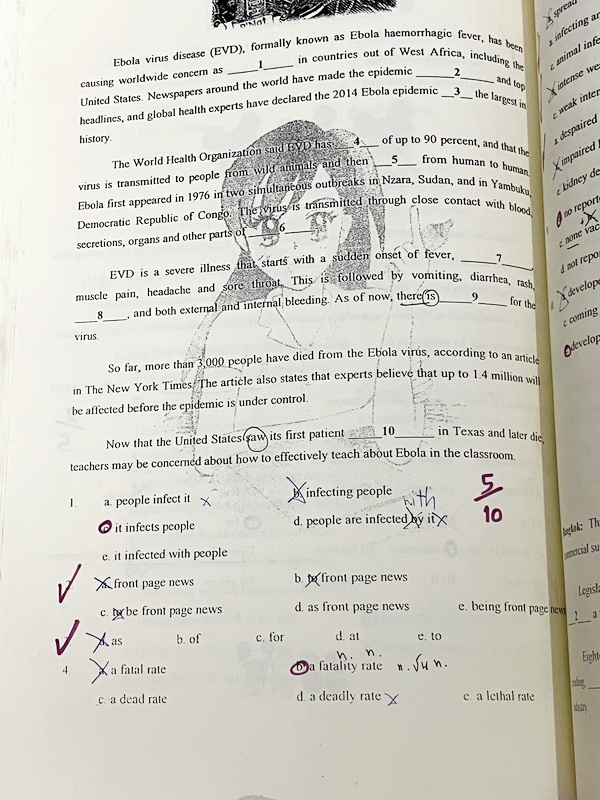 Ebola virus disease (EVD), formally known as Ebola haemorrhagic fever, has been
causing worldwide concern as ____1____ in countries out of West Africa, including the
United States. Newspapers around the world have made the epidemic ____2____ and top
headlines, and global health experts have declared the 2014 Ebola epidemic __3__ the largest in
history.
The World Health Organization said EVD has __4__ of up to 90 percent, and that the
virus is transmitted to people from wild animals and then __5__ from human to human.
Ebola first appeared in 1976 in two simultaneous outbreaks in Nzara, Sudan, and in Yambuku,
Democratic Republic of Congo. The virus is transmitted through close contact with blood,
secretions, organs and other parts of __6__
EVD is a severe illness that starts with a sudden onset of fever, ____7____
muscle pain, headache and sore throat. This is followed by vomiting, diarrhea, rash,
____8____, and both external and internal bleeding. As of now, there is ____9____ for the
virus.
So far, more than 3,000 people have died from the Ebola virus, according to an article
in The New York Times. The article also states that experts believe that up to 1.4 million will
be affected before the epidemic is under control.
Now that the United States saw its first patient ____10____ in Texas and later die,
teachers may be concerned about how to effectively teach about Ebola in the classroom.
5
10
1. a. people infect it x b. infecting people
with
c. it infects people d. people are infected by it x
e. it infected with people
a. front page news b. to front page news
c. to be front page news d. as front page news e. being front page news
a. as b. of c. for d. at e. to
n. n.
4. a. a fatal rate b. a fatality rate n. รวม n.
c. a dead rate d. a deadly rate x e. a lethal rate
spread
a. infecting
c. animal
intense
c. weak
a. despaired
impaired
c. kidney
a. no
c. none
d. not
c. coming